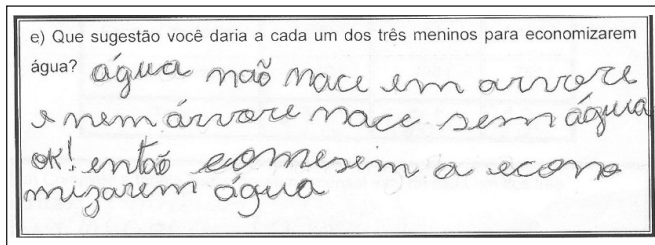 e) Que sugestão você daria a cada um dos três meninos para economizarem
água? água naõ nace em arvore
e nem árvore nace sem água
ok! entaõ comesem a econo
mizarem água